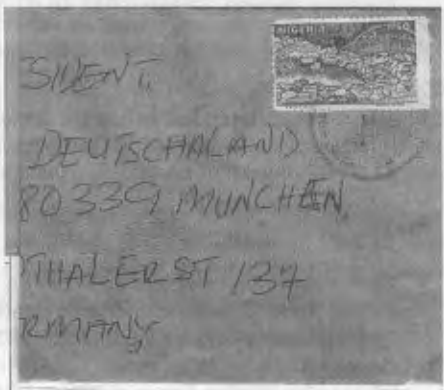 NIGERIA 50
SIDENT.
DEUTSCHALAND
80339 MUNCHEN,
THALERST 137
RMANY